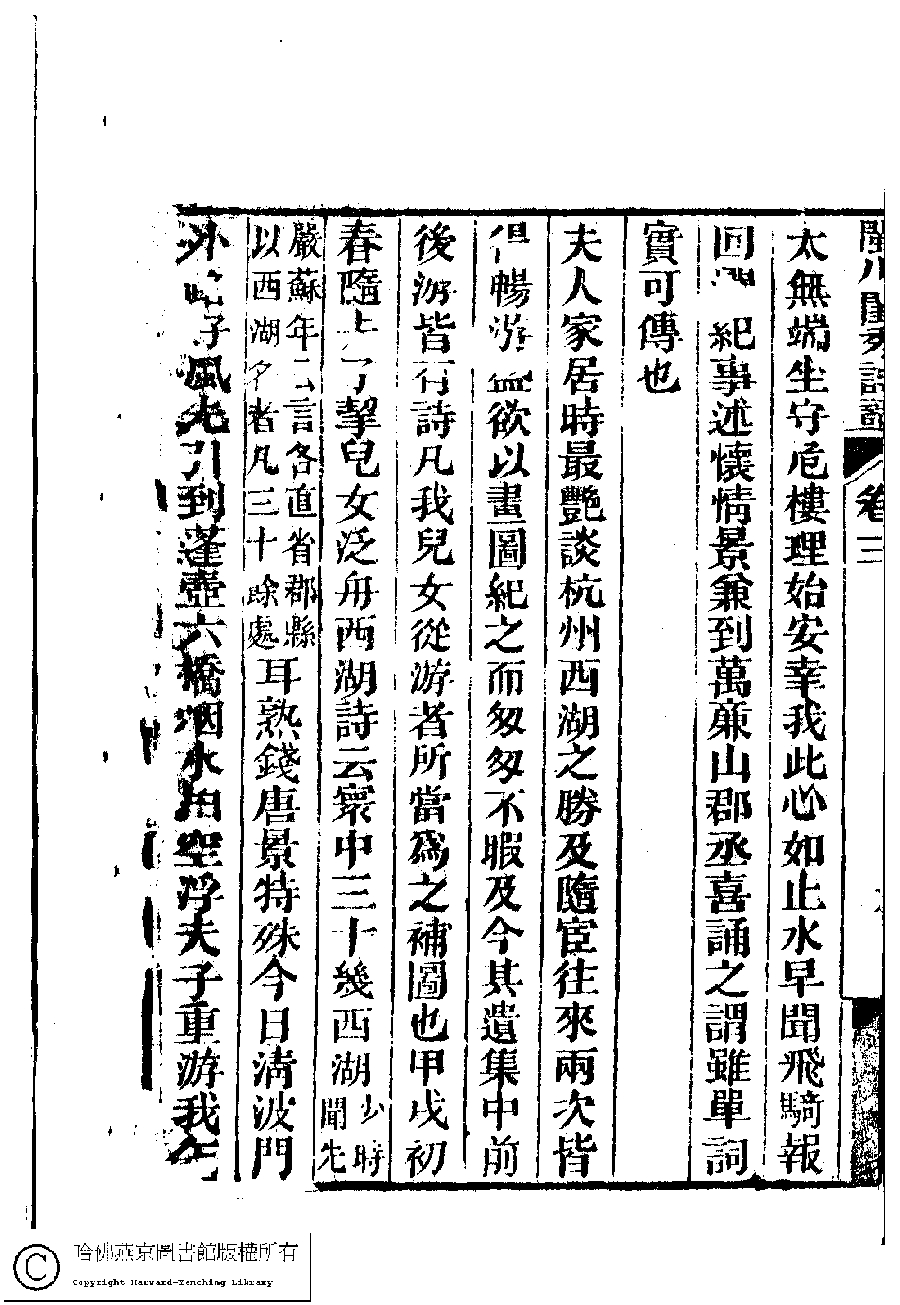 閨秀詩話 卷三
太無端坐守危樓理始安幸我此心如止水早聞飛騎報
回 紀事述懷情景兼到萬廉山郡丞喜誦之謂雖單詞
實可傳也
夫人家居時最艷談杭州西湖之勝及隨宦往來兩次皆
得暢游 欲以畫圖紀之而匆匆不暇及今其遺集中前
後游皆有詩凡我兒女從游者所當為之補圖也甲戌初
春隨 子挈兒女泛舟西湖詩云寰中三十幾西湖少時聞先
嚴蘇年 言各直省郡縣以西湖名者凡三十餘處耳熟錢唐景特殊今日清波門
外 好風光引到蓬壺六橋烟水拍空浮夫子重游我
哈佛燕京圖書館版權所有
Copyright Harvard-Yenching Library